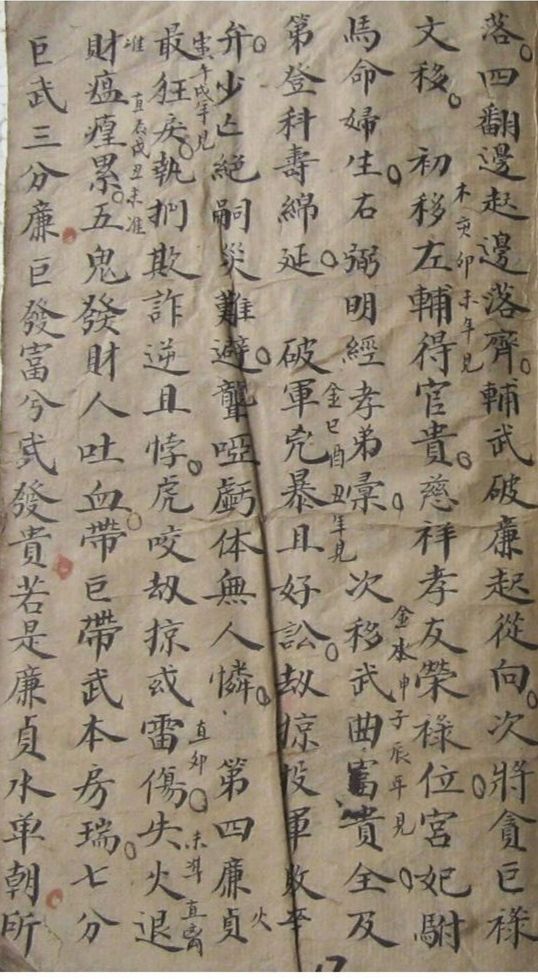 落四翻邊起邊落齊輔武破廉起從向次將貪巨祿
文移 初移左輔得官貴慈祥孝友榮祿位宮妃駙
木亥卯未年見
馬命婦生右弼明經孝弟彙 次移武曲富貴全及
金水申子辰年見
第登科壽綿延 破軍兇暴且好訟劫掠投軍敗卒
金巳酉丑年見
弁少亡絕嗣災難避聾啞虧体無人憐 第四廉貞
火
寅午戌年見
最狂戾執拗欺詐逆且悖虎咬劫掠或雷傷失火退
直卯 未準 直离
準 直辰戌丑未准
財瘟㾮累五鬼發財人吐血帶巨帶武本房瑞七分
巨武三分廉巨發富兮武發貴若是廉貞水單朝所